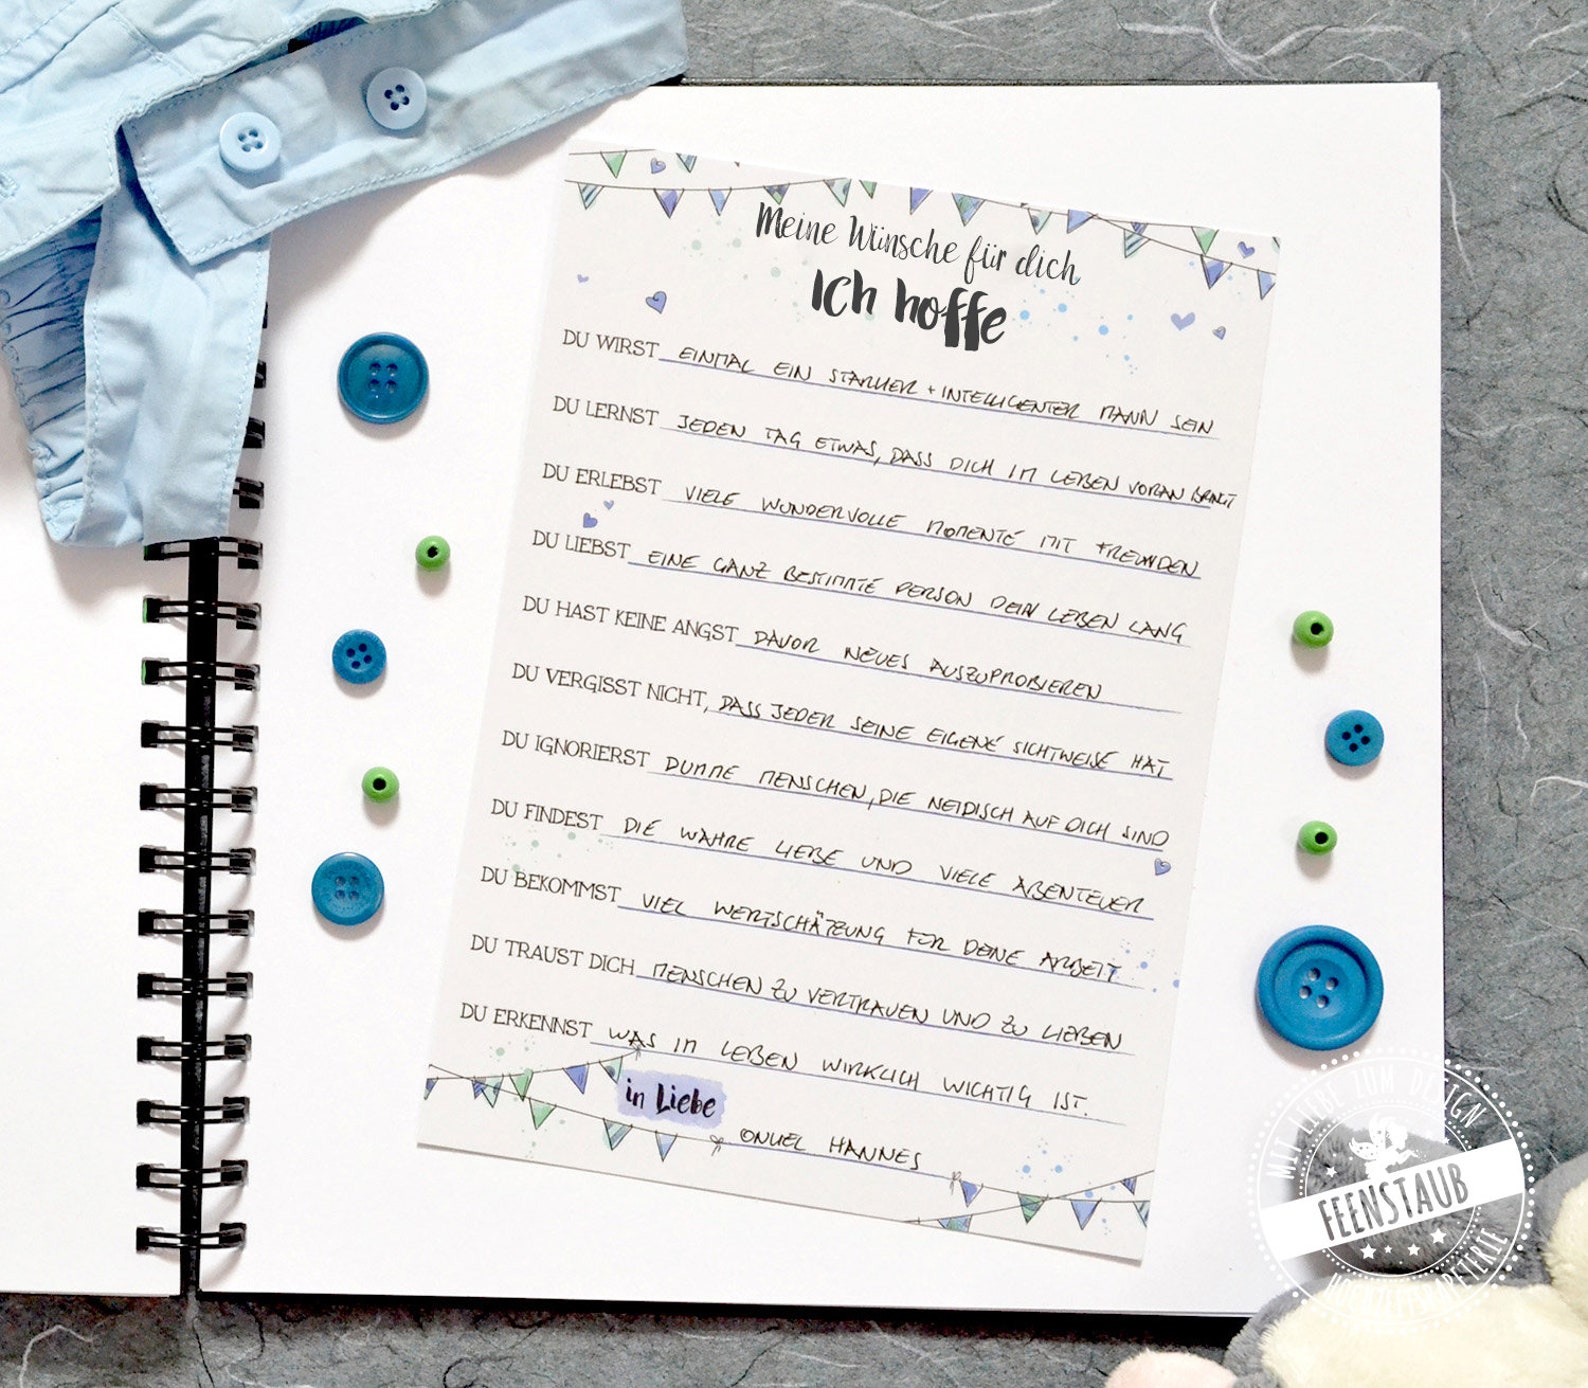 Meine Wünsche für dich
Ich hoffe
DU WIRST EINMAL EIN STARKER + INTELLIGENTER MANN SEIN
DU LERNST JEDEN TAG ETWAS, DASS DICH IM LEBEN VORAN BRINGT
DU ERLEBST VIELE WUNDERVOLLE MOMENTE MIT FREUNDEN
DU LIEBST EINE GANZ BESTIMMTE PERSON DEIN LEBEN LANG
DU HAST KEINE ANGST DAVOR NEUES AUSZUPROBIEREN
DU VERGISST NICHT, DASS JEDER SEINE EIGENE SICHTWEISE HAT
DU IGNORIERST DUMME MENSCHEN, DIE NEIDISCH AUF DICH SIND
DU FINDEST DIE WAHRE LIEBE UND VIELE ABENTEUER
DU BEKOMMST VIEL WERTSCHÄTZUNG FÜR DEINE ARBEIT
DU TRAUST DICH MENSCHEN ZU VERTRAUEN UND ZU LIEBEN
DU ERKENNST WAS IM LEBEN WIRKLICH WICHTIG IST.
in Liebe
ONKEL HANNES
MIT LIEBE ZUM DESIGN
FEENSTAUB
HOCHZEITSPAPETERIE